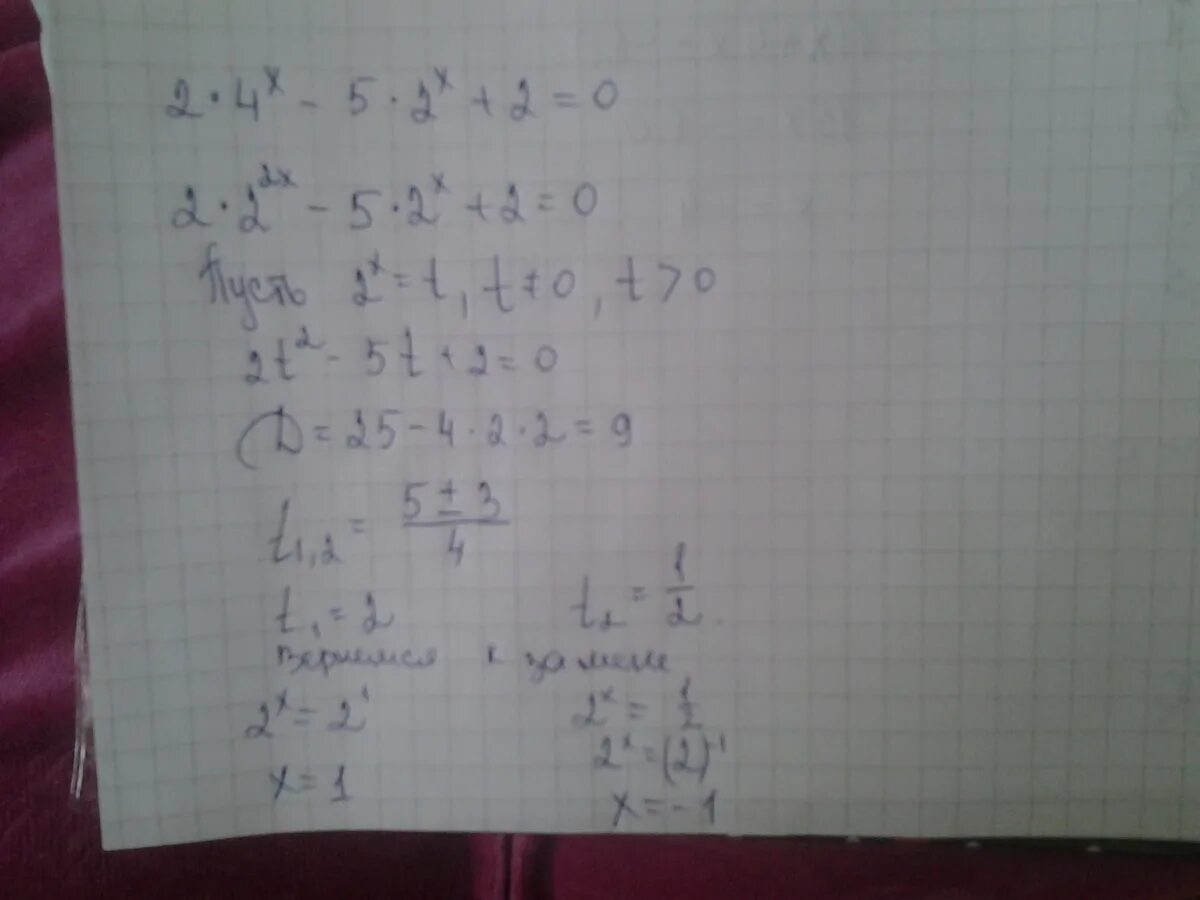 2·4ˣ - 5·2ˣ + 2 = 0
2·2²ˣ - 5·2ˣ + 2 = 0
Пусть 2ˣ = t, t ≠ 0, t > 0
2t² - 5t + 2 = 0
D = 25 - 4·2·2 = 9
t₁,₂ = (5 ± 3)/4
t₁ = 2 t₂ = 1/2
Вернемся к замене
2ˣ = 2¹ 2ˣ = 1/2
2ˣ = (2)⁻¹
x = 1 x = -1